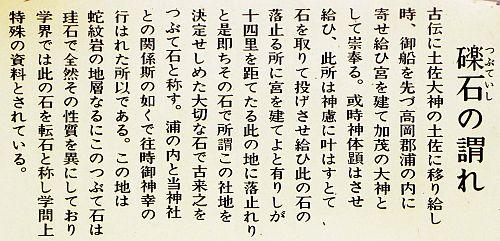 礫石の謂れ
つぶていし
古伝に土佐大神の土佐に移り給し
時、御船を先づ高岡郡浦の内に
寄せ給ひ宮を建て加茂の大神と
して崇奉る。或時神体顕はさせ
給ひ、此所は神慮に叶はすとて
石を取りて投げさせ給ひ此の石の
落止る所に宮を建てよと有りしが
十四里を距てたる此の地に落止れり
と是即ちその石で所謂この社地を
決定せしめた大切な石で古来之を
つぶて石と称す。浦の内と当神社
との関係斯の如くで往時御神幸の
行はれた所以である。この地は
蛇紋岩の地層なるにこのつぶて石は
珪石で全然その性質を異にしており
学界では此の石を転石と称し学問上
特殊の資料とされている。